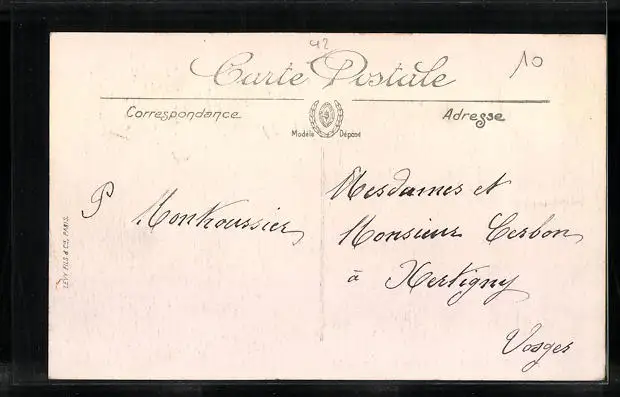 42
10
Carte Postale
Correspondance
Adresse
Modèle Déposé
LEVY FILS & CIE, PARIS.
P Monkoussier
Mesdames et
Monsieur Cerbon
à Xertigny
Vosges